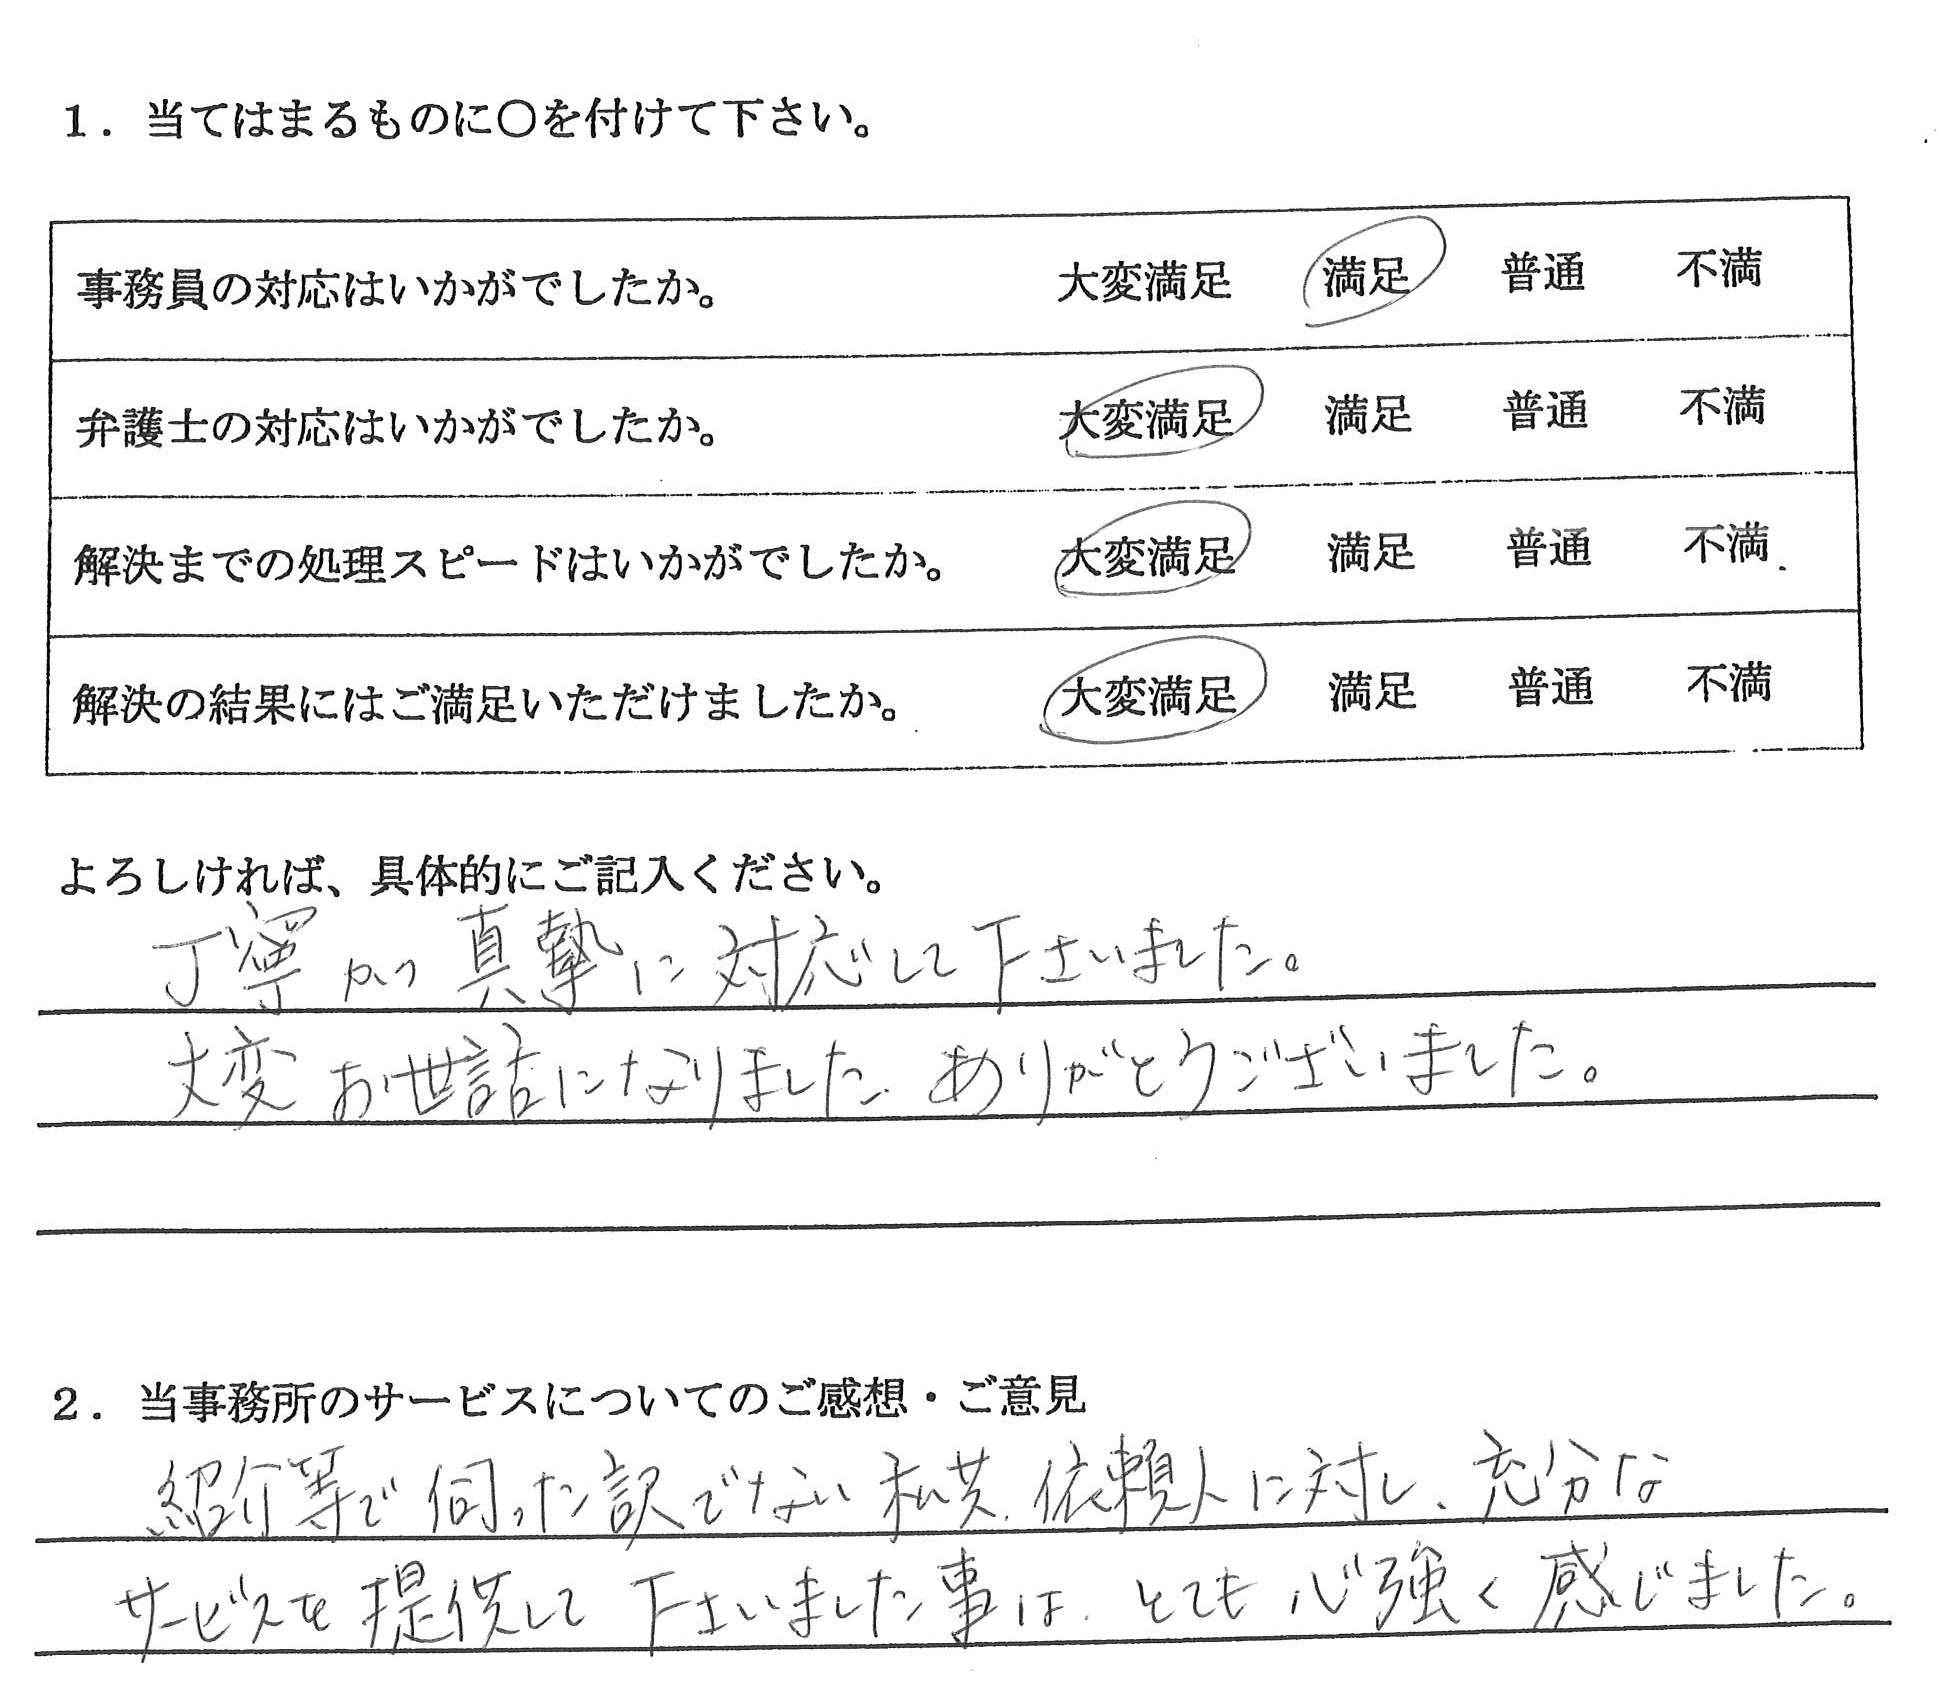 1．当てはまるものに○を付けて下さい。
事務員の対応はいかがでしたか。 大変満足 満足 普通 不満
弁護士の対応はいかがでしたか。 大変満足 満足 普通 不満
解決までの処理スピードはいかがでしたか。 大変満足 満足 普通 不満
解決の結果にはご満足いただけましたか。 大変満足 満足 普通 不満
よろしければ、具体的にご記入ください。
丁寧かつ真摯に対応して下さいました。
大変お世話になりました。ありがとうございました。
2．当事務所のサービスについてのご感想・ご意見
紹介等で伺った訳でない私共、依頼人に対し、充分な
サービスを提供して下さいました事は、とても心強く感じました。